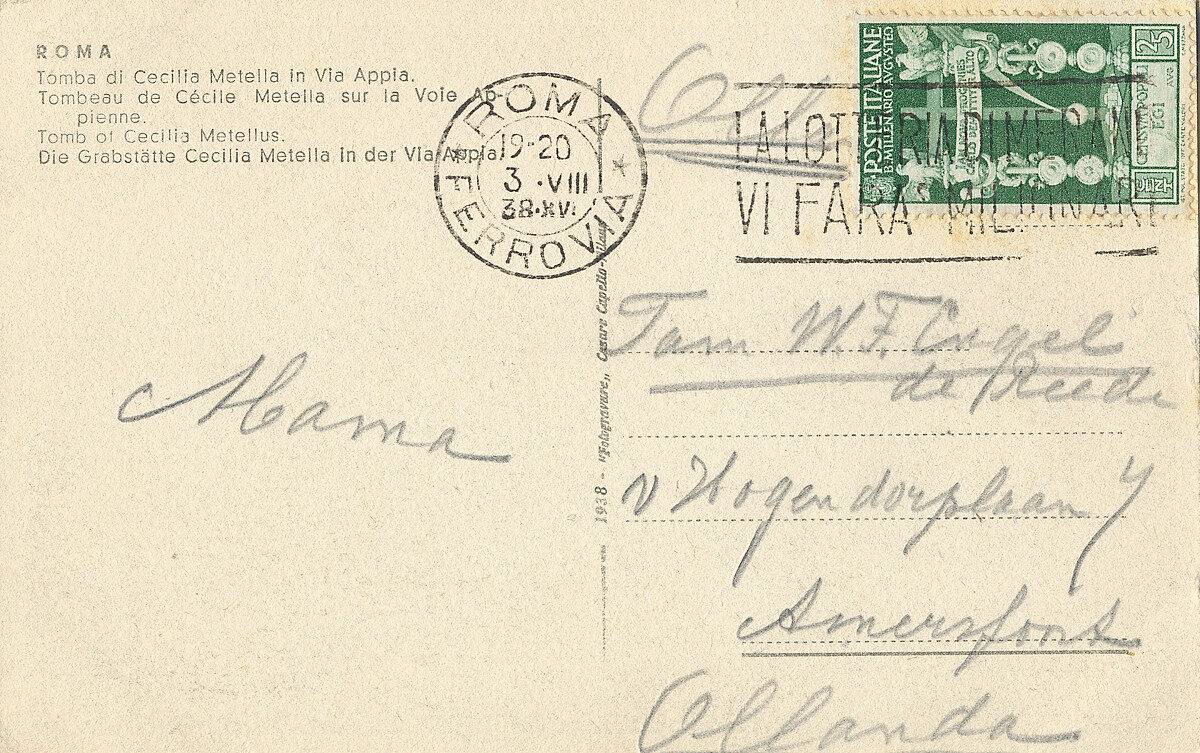 ROMA
Tomba di Cecilia Metella in Via Appia.
Tombeau de Cécile Metella sur la Voie Ap-
pienne.
Tomb of Cecilia Metellus.
Die Grabstätte Cecilia Metella in der Via Appia
ROMA
19-20
3 · VIII
38·XVI
FERROVIA
LA LOTTERIA DI MERANO
VI FARA' MILIONARI
POSTE ITALIANE
BIMILLENARIO AVGVSTEO
25
CENT
1938 - "Fotogravure" Cesare Capello-Milano
Mama
Fam W.F. Engel
de Reede
v Hogendorplaan 7
Amersfoort
Ollanda